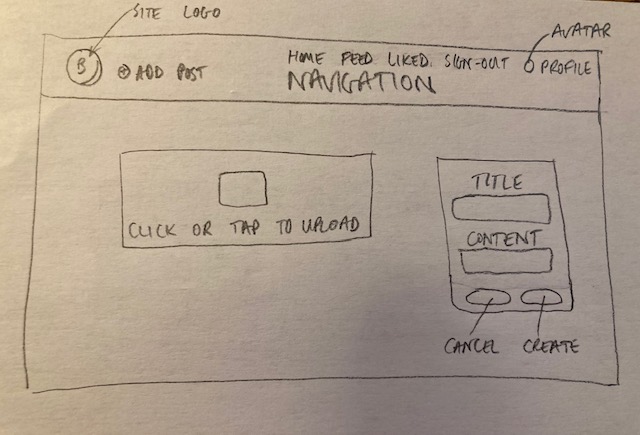 SITE LOGO
AVATAR
B
⊕ ADD POST
HOME FEED LIKED. SIGN-OUT PROFILE
NAVIGATION
CLICK OR TAP TO UPLOAD
TITLE
CONTENT
CANCEL CREATE